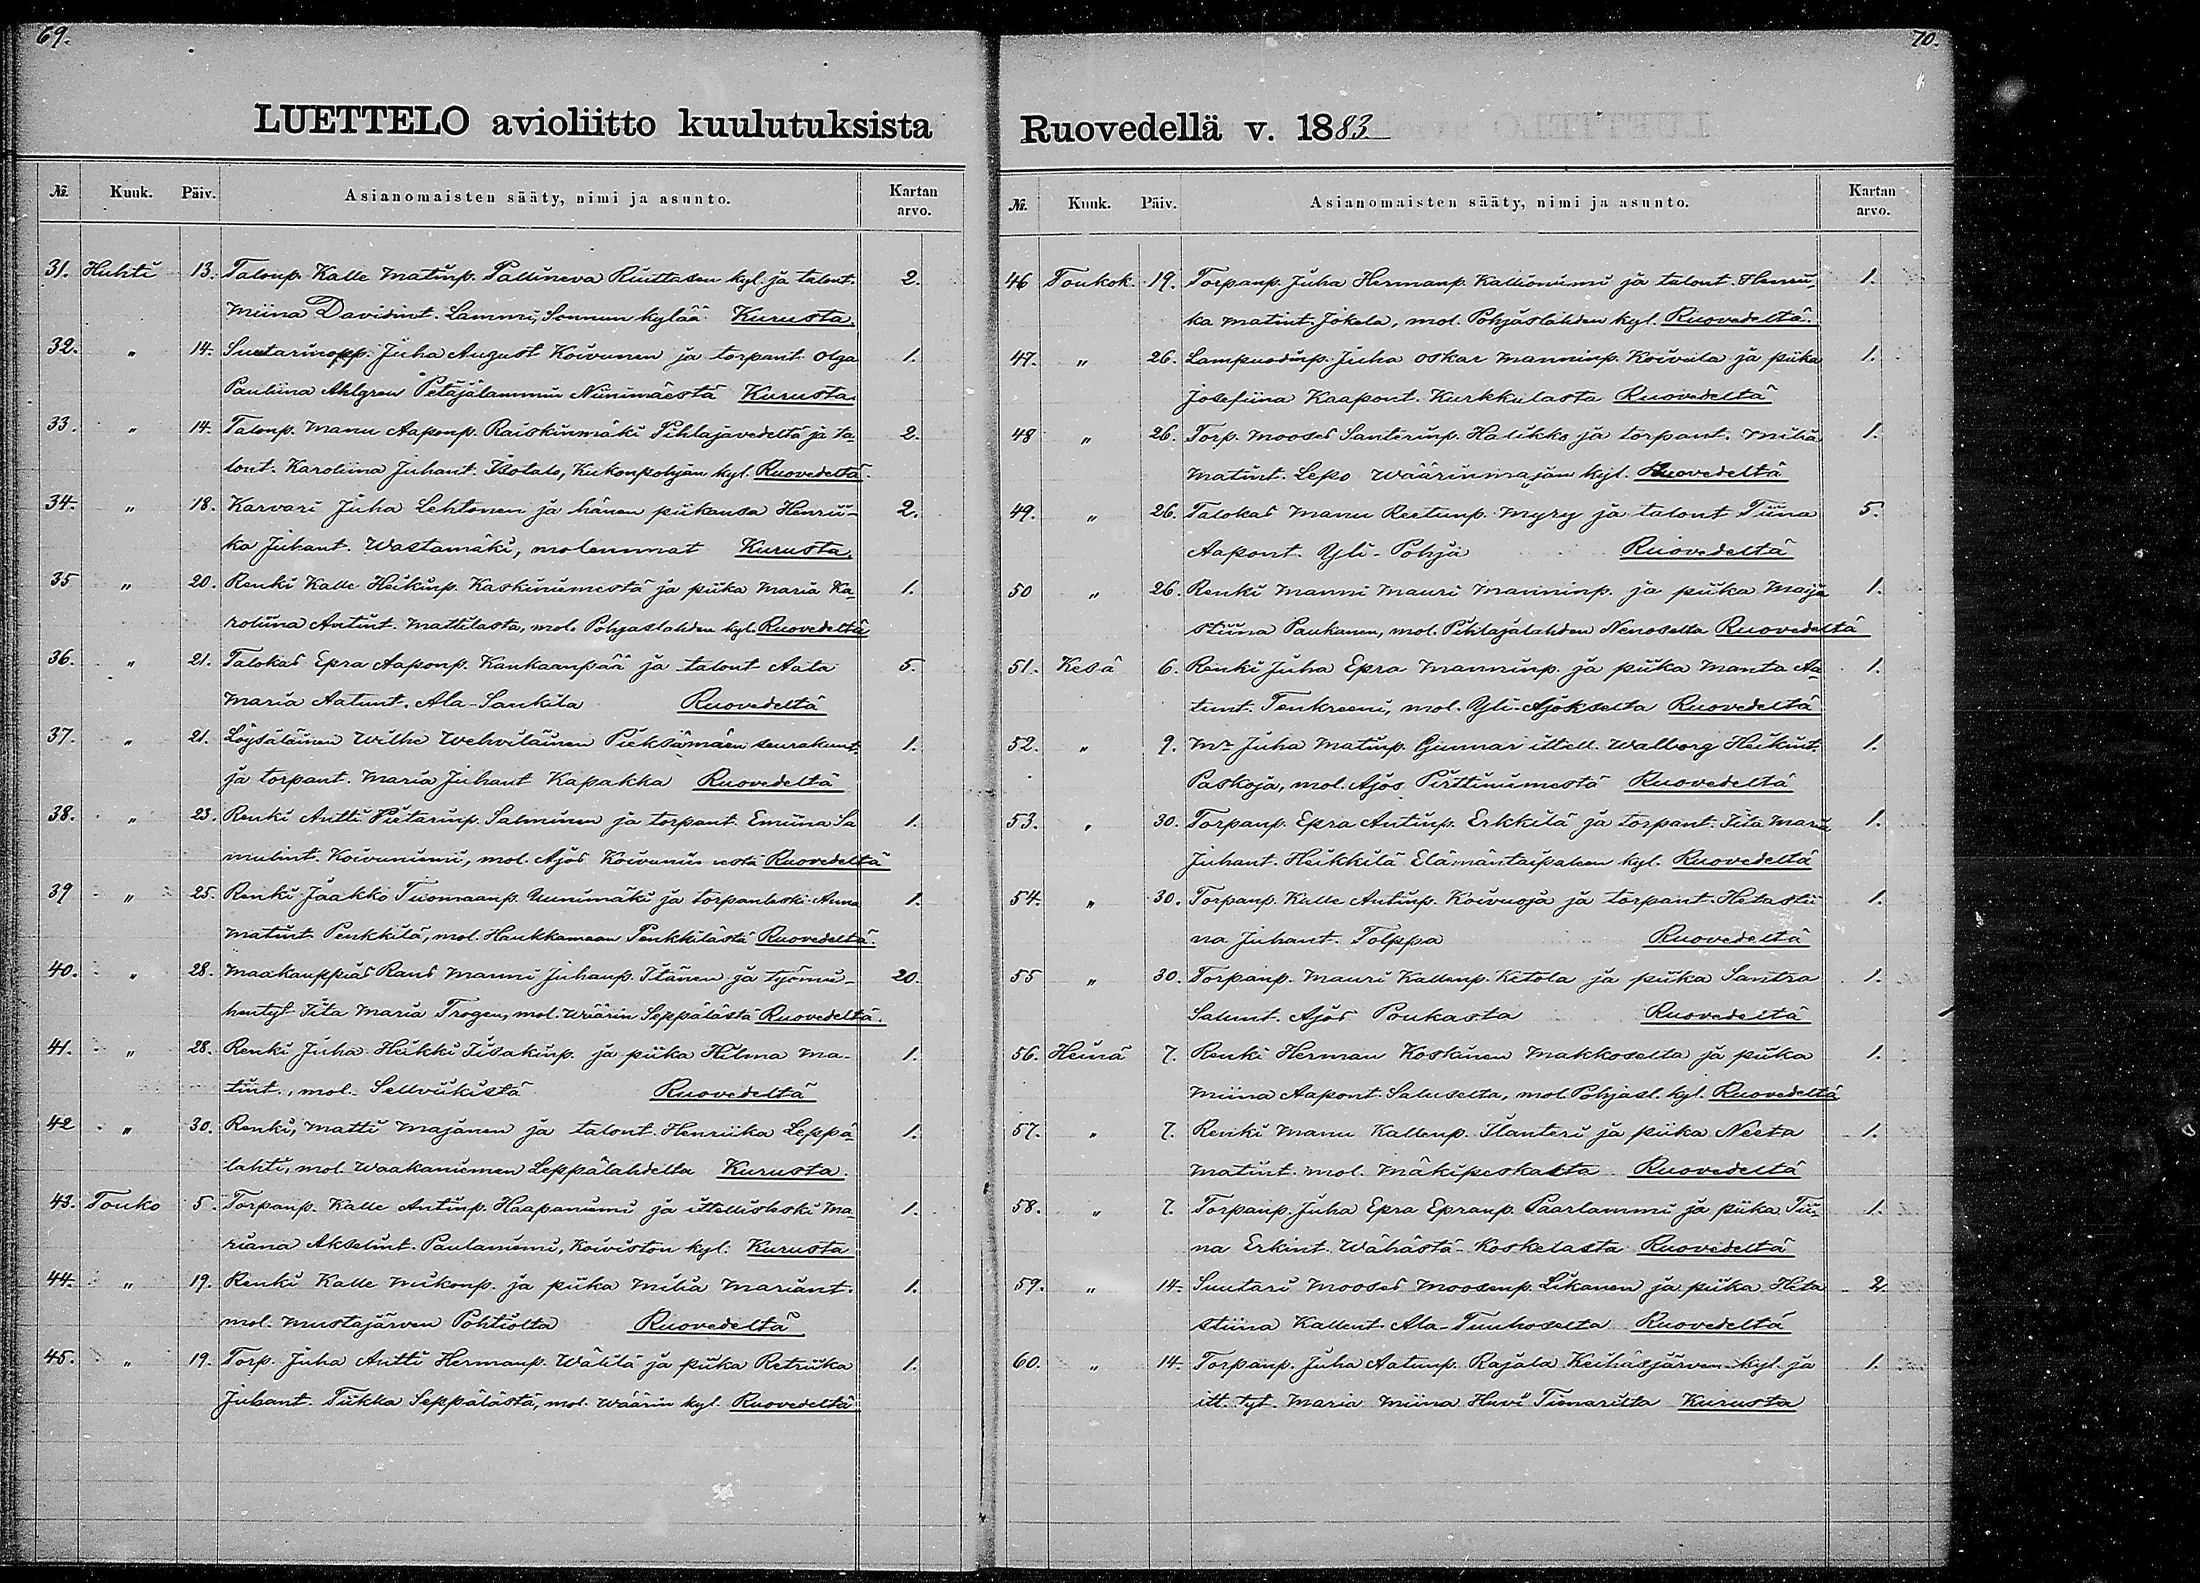 69.
LUETTELO avioliitto kuulutuksista
№ Kuuk. Päiv. Asianomaisten sääty, nimi ja asunto. Kartan arvo.
31. Huhti 13. Taloup. Kalle Matinp. Pallineva Riuttasen kyl. ja talont. 2.
Miina Davidint. Lammi, Sonnun kylää Kurusta.
32. " 14. Suutarinopp. Juha August Koivunen ja torpant. Olga 1.
Pauliina Ahlgren Petäjälammin Niinimäestä Kurusta.
33. " 14. Talonp. Manu Aaponp. Raiskinmäki Pihlajavedeltä ja ta- 2.
lont. Karoliina Juhant. Isotalo, Kukonpohjan kyl. Ruovedeltä.
34. " 18. Karvari Juha Lehtonen ja hänen piikansa Henrii- 2.
ka Juhant. Wastamäki, molemmat Kurusta.
35 " 20. Renki Kalle Heikinp. Kaskiniemestä ja piika Maria Ka- 1.
roliina Antint. Mattilasta, mol. Pohjaslahden kyl. Ruovedeltä
36. " 21. Talokas Epra Aaponp. Kankaanpää ja talont Aata 5.
Maria Aatunt. Ala-Sankila Ruovedeltä
37. " 21. Löysäläinen Wilhe Wehviläinen Pieksämäen seurakunt. 1.
ja torpant. Maria Juhant Kapakka Ruovedeltä
38. " 23. Renki Antti Pietarinp. Salminen ja torpant. Emiina Sa 1.
mulint. Koivuniemi, mol. Ajos Koivuniemestä Ruovedeltä
39 " 25. Renki Jaakko Tuomaanp. Uunimäki ja torpanleski Anna 1.
Matint Penkkilä, mol. Haukkamaan Penkkilästä Ruovedeltä.
40. " 28. Maakauppias Rans Manni Juhanp. Itänen ja työmie- 20.
hentyt Iita Maria Trogen, mol. Wäärin Seppälästä Ruovedeltä.
41. " 28. Renki Juha Heikki Iisakinp. ja piika Hilma Ma- 1.
tint., mol. Sellviikistä Ruovedeltä
42 " 30. Renki, Matti Majanen ja talont. Henriika Leppä- 1.
lahti, mol. Waakaniemen Leppälahdelta Kurusta.
43. Touko 5. Torpanp. Kalle Antinp. Haapaniemi ja ittellisleski Ma- 1.
riana Akselint. Paulaniemi, Koiviston kyl. Kurusta
44. " 19. Renki Kalle Mikonp. ja piika Milia Mariant. 1.
mol. Mustajärven Pohtiolta Ruovedeltä
45. " 19. Torp. Juha Antti Hermanp. Wälilä ja piika Retriika 1.
Juhant. Tiikka Seppälästä, mol. Wäärin kyl. Ruovedeltä
70.
Ruovedellä v. 1883
№ Kuuk. Päiv. Asianomaisten sääty, nimi ja asunto. Kartan arvo.
46 Toukok. 19. Torpanp. Juha Hermanp. Kallioniemi ja talont. Henrii- 1.
ka Matint. Jokela, mol. Pohjaslahden kyl. Ruovedeltä.
47. " 26. Lampuodinp. Juha Oskar Manninp. Koivula ja piika 1.
Josefiina Kaapont. Kurkkulasta Ruovedeltä
48 " 26. Torp. Mooses Santerinp. Halikko ja torpant. Milia 1.
Matint. Lepo Wäärinmajan kyl. Ruovedeltä
49. " 26. Talokas Manu Reetunp. Myry ja talont Tiina 5.
Aapont. Yli-Pohja Ruovedeltä
50 " 26. Renki Manni Mauri Manninp. ja piika Maja 1.
stiina Paukanen, mol. Pihlajalahden Nenoselta Ruovedeltä
51. Kesä 6. Renki Juha Epra Manninp. ja piika Manta Aa- 1.
tunt. Tenkreeni, mol. Yli-Ajokselta Ruovedeltä
52. " 9. Mr Juha Matinp. Gunnar ittell. Walborg Heikint. 1.
Paskoja, mol. Ajos Pirttiniemestä Ruovedeltä
53. " 30. Torpanp. Epra Antinp. Erkkilä ja torpant. Iita Maria 1.
Juhant. Heikkilä Elämäntaipaleen kyl. Ruovedeltä
54. " 30. Torpanp. Kalle Antinp. Koivuoja ja torpant. Hetastii 1.
na Juhant. Tolppa Ruovedeltä
55 " 30. Torpanp. Mauri Kallenp. Ketola ja piika Santra 1.
Salunt. Ajos Poukasta Ruovedeltä
56. Heinä 7. Renki Herman Koskinen Makkoselta ja piika 1.
Miina Aapont. Saluselta, mol. Pohjasl. kyl. Ruovedeltä
57. " 7. Renki Manu Kallenp. Ilanteri ja piika Neeta 1.
Matint. mol. Mäkipeskasta Ruovedeltä
58. " 7. Torpanp. Juha Epra Epranp. Paarlammi ja piika Tii- 1.
na Erkint. Wähästä-Koskelasta Ruovedeltä
59. " 14. Suutari Mooses Moosenp. Likanen ja piika Heta 2
stiina Kallent. Ala-Tuuhoselta Ruovedeltä
60. " 14. Torpanp. Juha Aatunp. Rajala Keihäsjärven kyl. ja 1.
itt. tyt. Maria Miina Huvi Tienarilta Kurusta